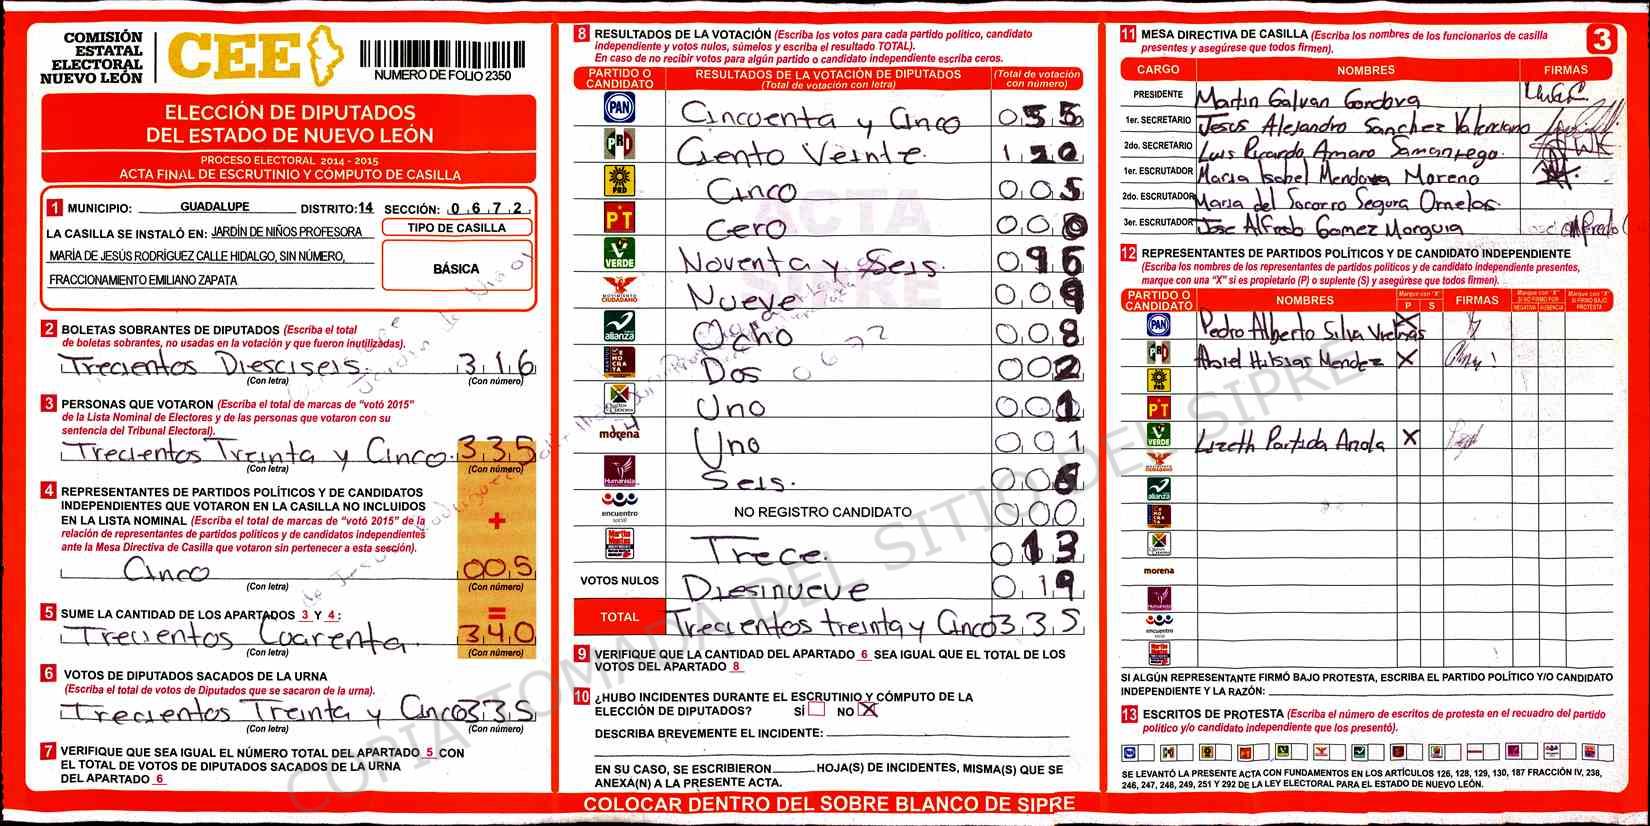 COMISIÓN
ESTATAL
ELECTORAL
NUEVO LEÓN
CEE
NUMERO DE FOLIO 2350
ELECCIÓN DE DIPUTADOS
DEL ESTADO DE NUEVO LEÓN
PROCESO ELECTORAL 2014 - 2015
ACTA FINAL DE ESCRUTINIO Y CÓMPUTO DE CASILLA
1 MUNICIPIO: GUADALUPE DISTRITO:14 SECCIÓN: 0 6 7 2
LA CASILLA SE INSTALÓ EN: JARDÍN DE NIÑOS PROFESORA
MARÍA DE JESÚS RODRÍGUEZ CALLE HIDALGO, SIN NÚMERO,
FRACCIONAMIENTO EMILIANO ZAPATA
TIPO DE CASILLA
BÁSICA
2 BOLETAS SOBRANTES DE DIPUTADOS (Escriba el total
de boletas sobrantes, no usadas en la votación y que fueron inutilizadas).
Trecientos Diesciseis. 3 1 6
(Con letra) (Con número)
3 PERSONAS QUE VOTARON (Escriba el total de marcas de "votó 2015"
de la Lista Nominal de Electores y de las personas que votaron con su
sentencia del Tribunal Electoral).
Trecientos Treinta y Cinco. 3 3 5
(Con letra) (Con número)
4 REPRESENTANTES DE PARTIDOS POLÍTICOS Y DE CANDIDATOS
INDEPENDIENTES QUE VOTARON EN LA CASILLA NO INCLUIDOS
EN LA LISTA NOMINAL (Escriba el total de marcas de "votó 2015" de la
relación de representantes de partidos políticos y de candidatos independientes
ante la Mesa Directiva de Casilla que votaron sin pertenecer a esta sección).
+
Cinco 0 0 5
(Con letra) (Con número)
=
5 SUME LA CANTIDAD DE LOS APARTADOS 3 Y 4:
Trecientos Cuarenta. 3 4 0
(Con letra) (Con número)
6 VOTOS DE DIPUTADOS SACADOS DE LA URNA
(Escriba el total de votos de Diputados que se sacaron de la urna).
Trecientos Treinta y Cinco 3 3 5
(Con letra) (Con número)
7 VERIFIQUE QUE SEA IGUAL EL NÚMERO TOTAL DEL APARTADO 5 CON
EL TOTAL DE VOTOS DE DIPUTADOS SACADOS DE LA URNA
DEL APARTADO 6
8 RESULTADOS DE LA VOTACIÓN (Escriba los votos para cada partido político, candidato
independiente y votos nulos, súmelos y escriba el resultado TOTAL).
En caso de no recibir votos para algún partido o candidato independiente escriba ceros.
PARTIDO O CANDIDATO
RESULTADOS DE LA VOTACIÓN DE DIPUTADOS
(Total de votación con letra)
(Total de votación con número)
PAN Cincuenta y Cinco 0 5 5
PRI Ciento Veinte. 1 2 0
PRD Cinco 0 0 5
PT Cero 0 0 0
VERDE Noventa y Seis. 0 9 6
MOVIMIENTO CIUDADANO Nueve 0 0 9
alianza Ocho 0 0 8
DEMOCRATA Dos 0 0 2
Uno 0 0 1
morena Uno 0 0 1
Humanista Seis. 0 0 6
encuentro social NO REGISTRO CANDIDATO 0 0 0
Trece. 0 1 3
VOTOS NULOS Diesinueve 0 1 9
TOTAL Trecientos treinta y Cinco 3 3 5
ACTA
SIPRE
0 6 7 2
9 VERIFIQUE QUE LA CANTIDAD DEL APARTADO 6 SEA IGUAL QUE EL TOTAL DE LOS
VOTOS DEL APARTADO 8
10 ¿HUBO INCIDENTES DURANTE EL ESCRUTINIO Y CÓMPUTO DE LA
ELECCIÓN DE DIPUTADOS? SÍ NO X
DESCRIBA BREVEMENTE EL INCIDENTE:
EN SU CASO, SE ESCRIBIERON HOJA(S) DE INCIDENTES, MISMA(S) QUE SE
ANEXA(N) A LA PRESENTE ACTA.
COLOCAR DENTRO DEL SOBRE BLANCO DE SIPRE
11 MESA DIRECTIVA DE CASILLA (Escriba los nombres de los funcionarios de casilla
presentes y asegúrese que todos firmen).
3
CARGO NOMBRES FIRMAS
PRESIDENTE Martin Galvan Gordova
1er. SECRETARIO Jesus Alejandro Sanchez Valenciano
2do. SECRETARIO Luis Ricardo Amaro Samaniego.
1er. ESCRUTADOR Maria Isabel Mendoza Moreno
2do. ESCRUTADOR Maria del Socorro Segura Ornelas.
3er. ESCRUTADOR Jose Alfredo Gomez Morguia
12 REPRESENTANTES DE PARTIDOS POLÍTICOS Y DE CANDIDATO INDEPENDIENTE
(Escriba los nombres de los representantes de partidos políticos y de candidato independiente presentes,
marque con una "X" si es propietario (P) o suplente (S) y asegúrese que todos firmen).
PARTIDO O CANDIDATO NOMBRES
Marque con "X"
P S
FIRMAS
Marque con "X" SI NO FIRMÓ POR
NEGATIVA AUSENCIA
Marque con "X" SI FIRMÓ BAJO PROTESTA
PAN Pedro Alberto Silva X
PRI Mendez X
PRD
PT
VERDE Lizeth Partida X
MOVIMIENTO CIUDADANO
alianza
morena
Humanista
encuentro social
SI ALGÚN REPRESENTANTE FIRMÓ BAJO PROTESTA, ESCRIBA EL PARTIDO POLÍTICO Y/O CANDIDATO
INDEPENDIENTE Y LA RAZÓN:
13 ESCRITOS DE PROTESTA (Escriba el número de escritos de protesta en el recuadro del partido
político y/o candidato independiente que los presentó).
SE LEVANTÓ LA PRESENTE ACTA CON FUNDAMENTOS EN LOS ARTÍCULOS 126, 128, 129, 130, 187 FRACCIÓN IV, 238,
246, 247, 248, 249, 251 Y 292 DE LA LEY ELECTORAL PARA EL ESTADO DE NUEVO LEÓN.
COPIA TOMADA DEL SITIO DEL SIPRE